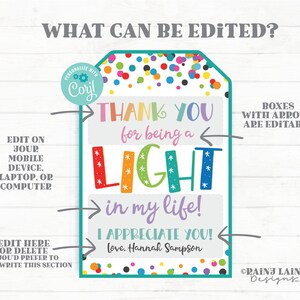 WHAT CAN BE EDITED?
PERSONALIZE WITH
Corjl
THANK YOU
for being a
LIGHT
in my life!
I APPRECIATE YOU!
love, Hannah Sampson
EDIT ON
YOUR
MOBILE
DEVICE,
LAPTOP, OR
COMPUTER
EDIT HERE
OR DELETE
YOU'D PREFER TO
WRITE THIS SECTION
BOXES
WITH ARROW
ARE EDITAB
©RAINY LAIN
Designs